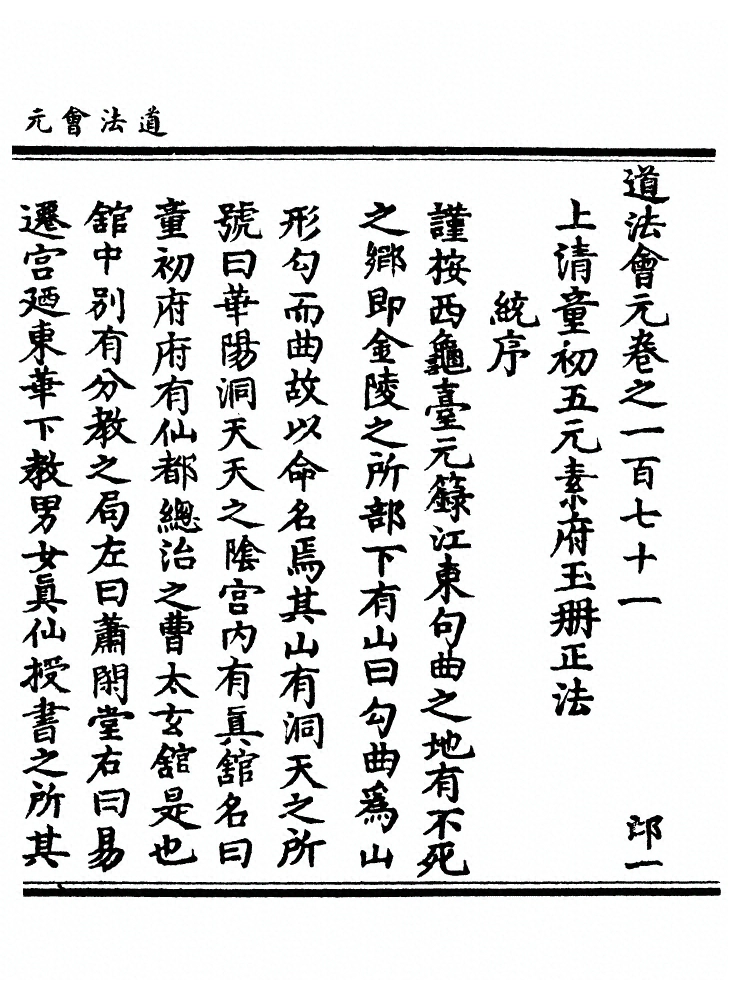 道法會元
道法會元卷之一百七十一 邙一
上清童初五元素府玉冊正法
統序
謹按西龜臺元籙江東句曲之地有不死
之鄉即金陵之所部下有山曰勾曲爲山
形勾而曲故以命名焉其山有洞天之所
號曰華陽洞天天之陰宮內有眞舘名曰
童初府府有仙都總治之曹太玄舘是也
舘中別有分教之局左曰蕭閑堂右曰易
遷宮廼東華下教男女眞仙授書之所其